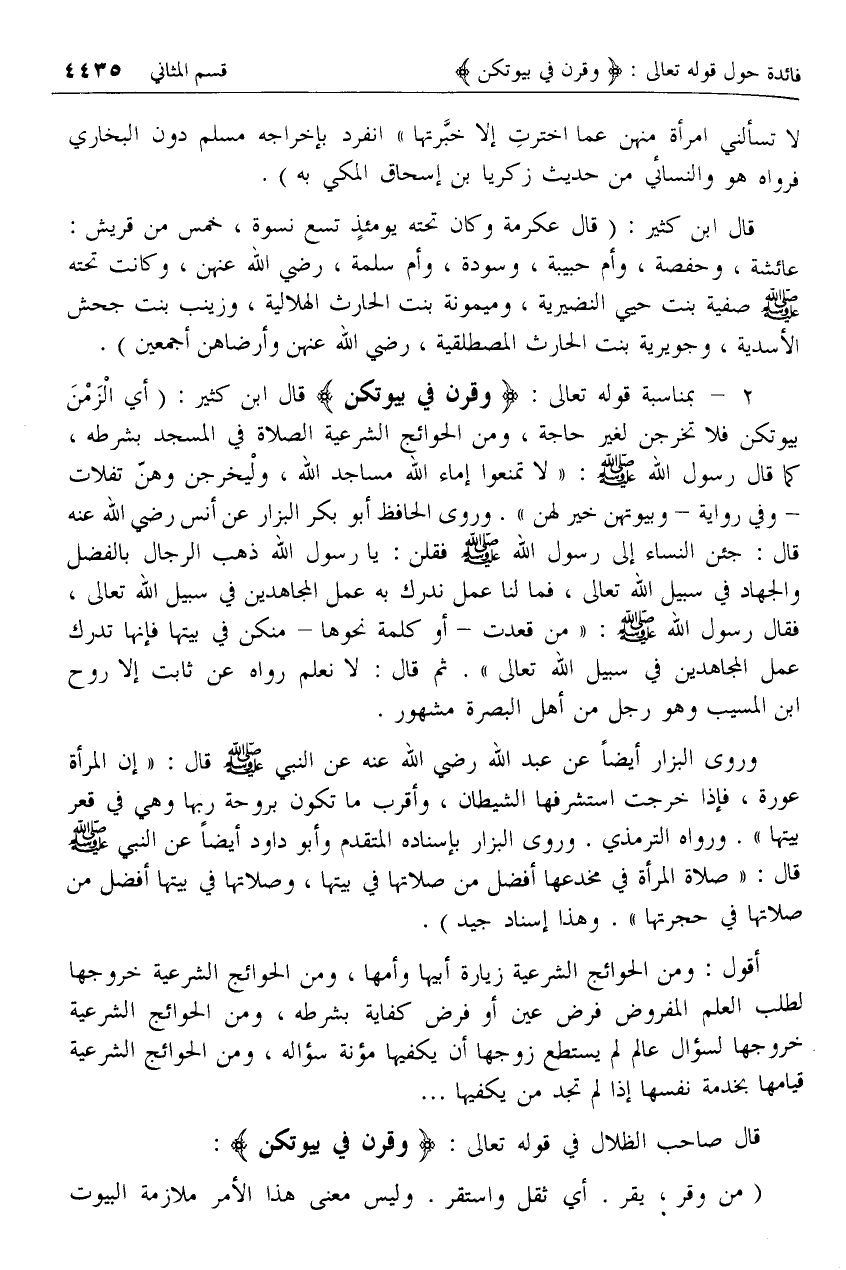 فائدة حول قوله تعالى : ﴿ وقرن في بيوتكن ﴾ قسم المثاني ٤٤٣٥
لا تسألني امرأة منهن عما اخترتِ إلا خبَّرتها » انفرد بإخراجه مسلم دون البخاري
فرواه هو والنسائي من حديث زكريا بن إسحاق المكي به ) .
قال ابن كثير : ( قال عكرمة وكان تحته يومئذٍ تسع نسوة ، خمس من قريش :
عائشة ، وحفصة ، وأم حبيبة ، وسودة ، وأم سلمة ، رضي الله عنهن ، وكانت تحته
ﷺ صفية بنت حيي النضيرية ، وميمونة بنت الحارث الهلالية ، وزينب بنت جحش
الأسدية ، وجويرية بنت الحارث المصطلقية ، رضي الله عنهن وأرضاهن أجمعين ) .
٢ – بمناسبة قوله تعالى : ﴿ وقرن في بيوتكن ﴾ قال ابن كثير : ( أي الْزَمْنَ
بيوتكن فلا تخرجن لغير حاجة ، ومن الحوائج الشرعية الصلاة في المسجد بشرطه ،
كما قال رسول الله ﷺ : « لا تمنعوا إماء الله مساجد الله ، ولْيخرجن وهنّ تفلات
– وفي رواية – وبيوتهن خير لهن » . وروى الحافظ أبو بكر البزار عن أنس رضي الله عنه
قال : جئن النساء إلى رسول الله ﷺ فقلن : يا رسول الله ذهب الرجال بالفضل
والجهاد في سبيل الله تعالى ، فما لنا عمل ندرك به عمل المجاهدين في سبيل الله تعالى ،
فقال رسول الله ﷺ : « من قعدت – أو كلمة نحوها – منكن في بيتها فإنها تدرك
عمل المجاهدين في سبيل الله تعالى » . ثم قال : لا نعلم رواه عن ثابت إلا روح
ابن المسيب وهو رجل من أهل البصرة مشهور .
وروى البزار أيضاً عن عبد الله رضي الله عنه عن النبي ﷺ قال : « إن المرأة
عورة ، فإذا خرجت استشرفها الشيطان ، وأقرب ما تكون بروحة ربها وهي في قعر
بيتها » . ورواه الترمذي . وروى البزار بإسناده المتقدم وأبو داود أيضاً عن النبي ﷺ
قال : « صلاة المرأة في مخدعها أفضل من صلاتها في بيتها ، وصلاتها في بيتها أفضل من
صلاتها في حجرتها » . وهذا إسناد جيد ) .
أقول : ومن الحوائج الشرعية زيارة أبيها وأمها ، ومن الحوائج الشرعية خروجها
لطلب العلم المفروض فرض عين أو فرض كفاية بشرطه ، ومن الحوائج الشرعية
خروجها لسؤال عالم لم يستطع زوجها أن يكفيها مؤنة سؤاله ، ومن الحوائج الشرعية
قيامها بخدمة نفسها إذا لم تجد من يكفيها ...
قال صاحب الظلال في قوله تعالى : ﴿ وقرن في بيوتكن ﴾ :
( من وقر ، يقر . أي ثقل واستقر . وليس معنى هذا الأمر ملازمة البيوت